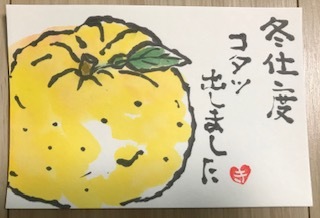 冬仕度
コタツ
出しました
寺